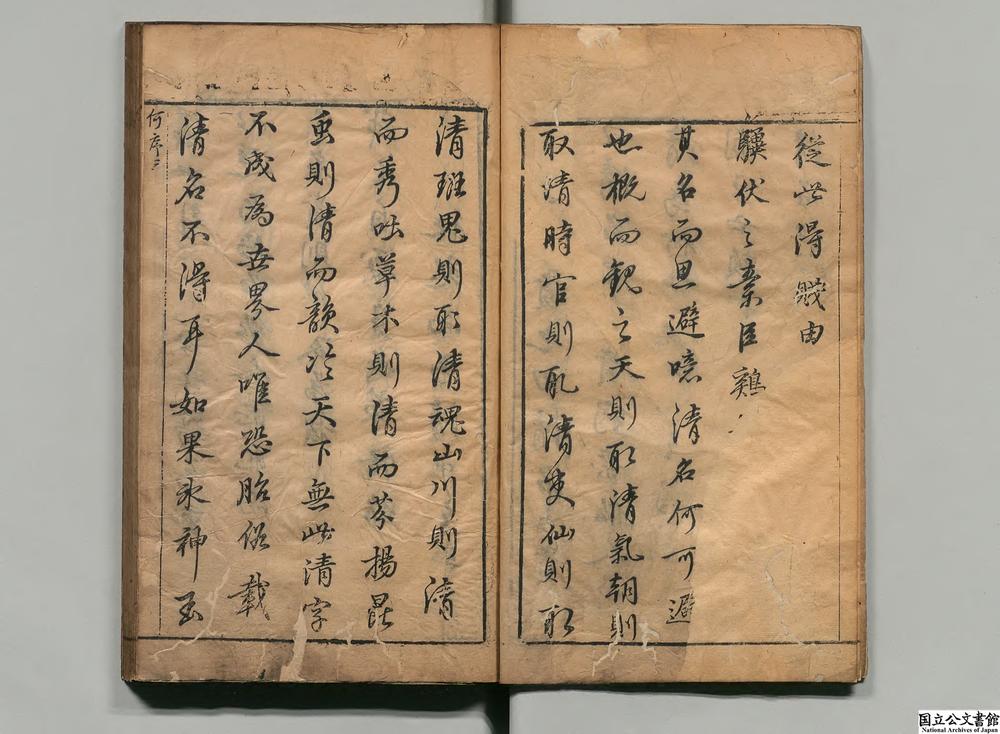 從此得賤由
驥伏之素臣鷄
其名而思避噫清名何可避
也概而觀之天則取清氣朝則
取清時官則取清吏仙則取
清班鬼則取清魂山川則清
而秀吐草木則清而芬揚昆
虫則清而韻冷天下無此清字
不成為世界人唯恐胎俗載
清名不得耳如果氷神玉
何序三
国立公文書館
National Archives of Japan